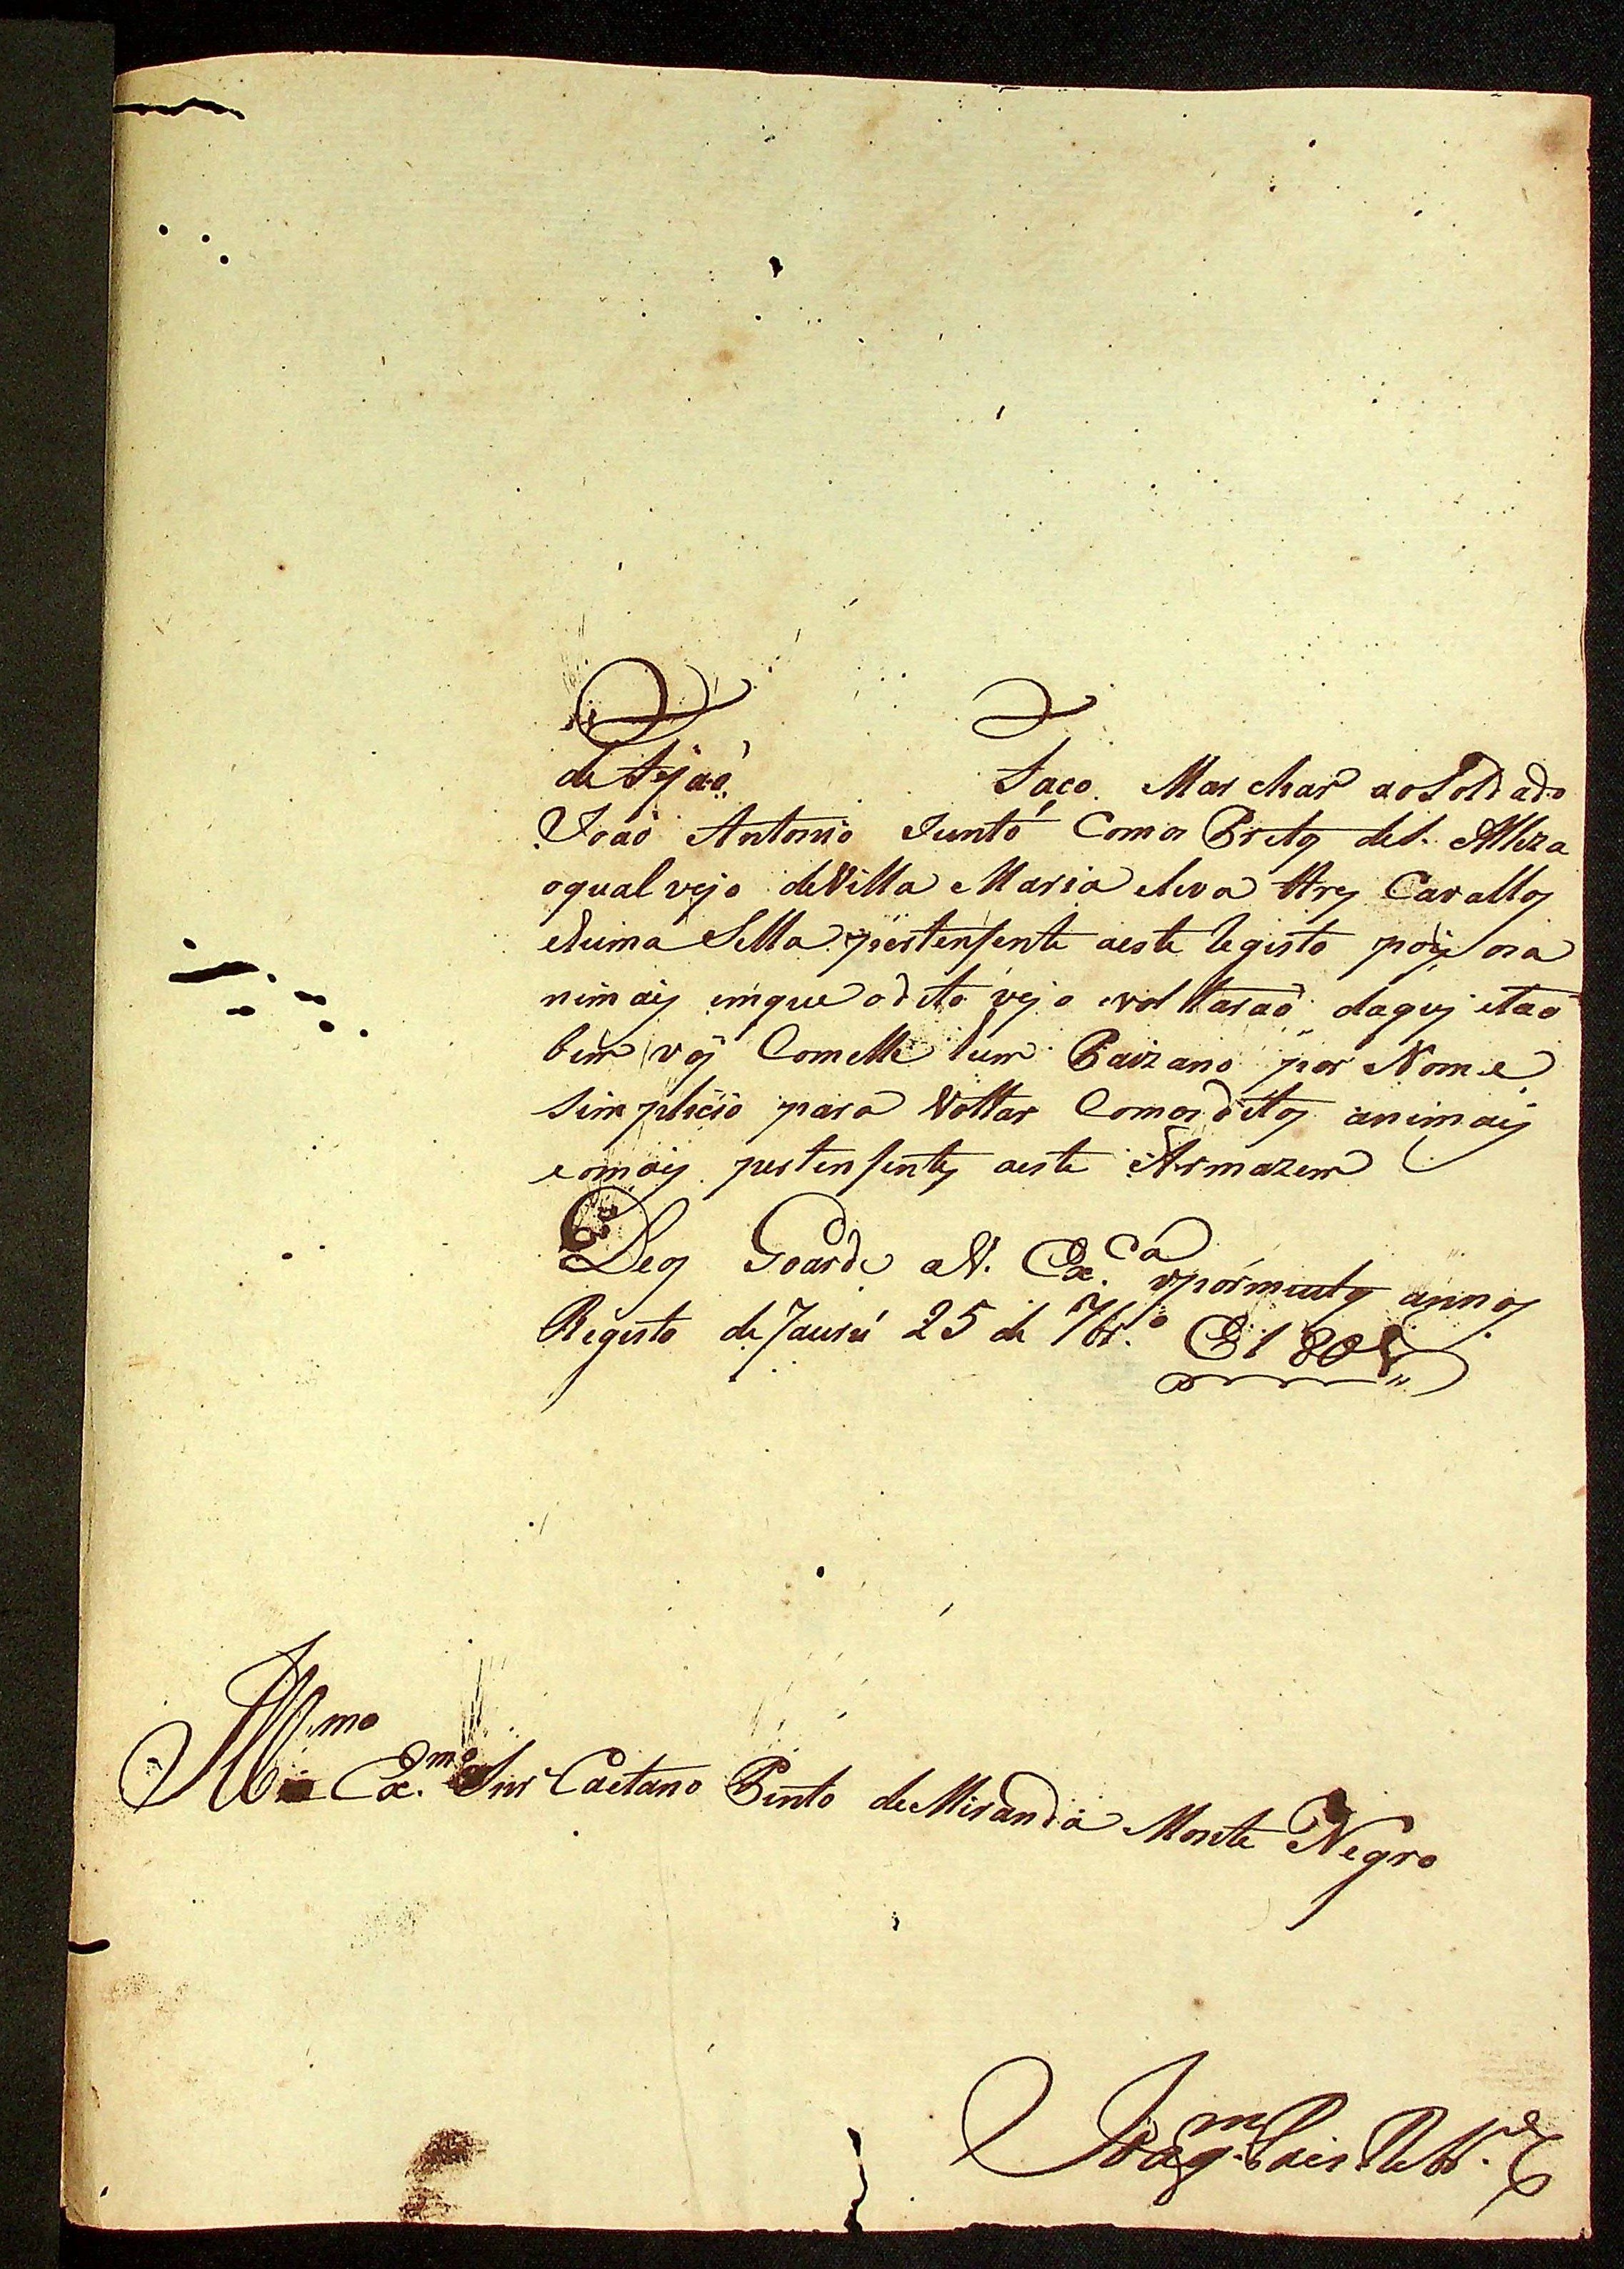 de Sejaó Faço Marchar ao Soldado
Joaó Antonio Junto Com os Pretos de S. Alteza
oqual vejo deVilla Maria eleva tres Cavallos
ehuma Sella pertensente aeste Registo pois os a
nimais emque odito vejo voltaraó daqui etaó
bem vai Comelle hum Paizano por Nome
Simplicio para Voltar Comos ditos animais
eomais pertensentes aeste Armazem
Deos Goarde aV. Ex.ca por muitos annos
Registo de Jaurú 25 de 7br.o E 1801
Ill.mo Ex.mo Snr Caetano Pinto deMiranda Monte Negro
Joaq.m